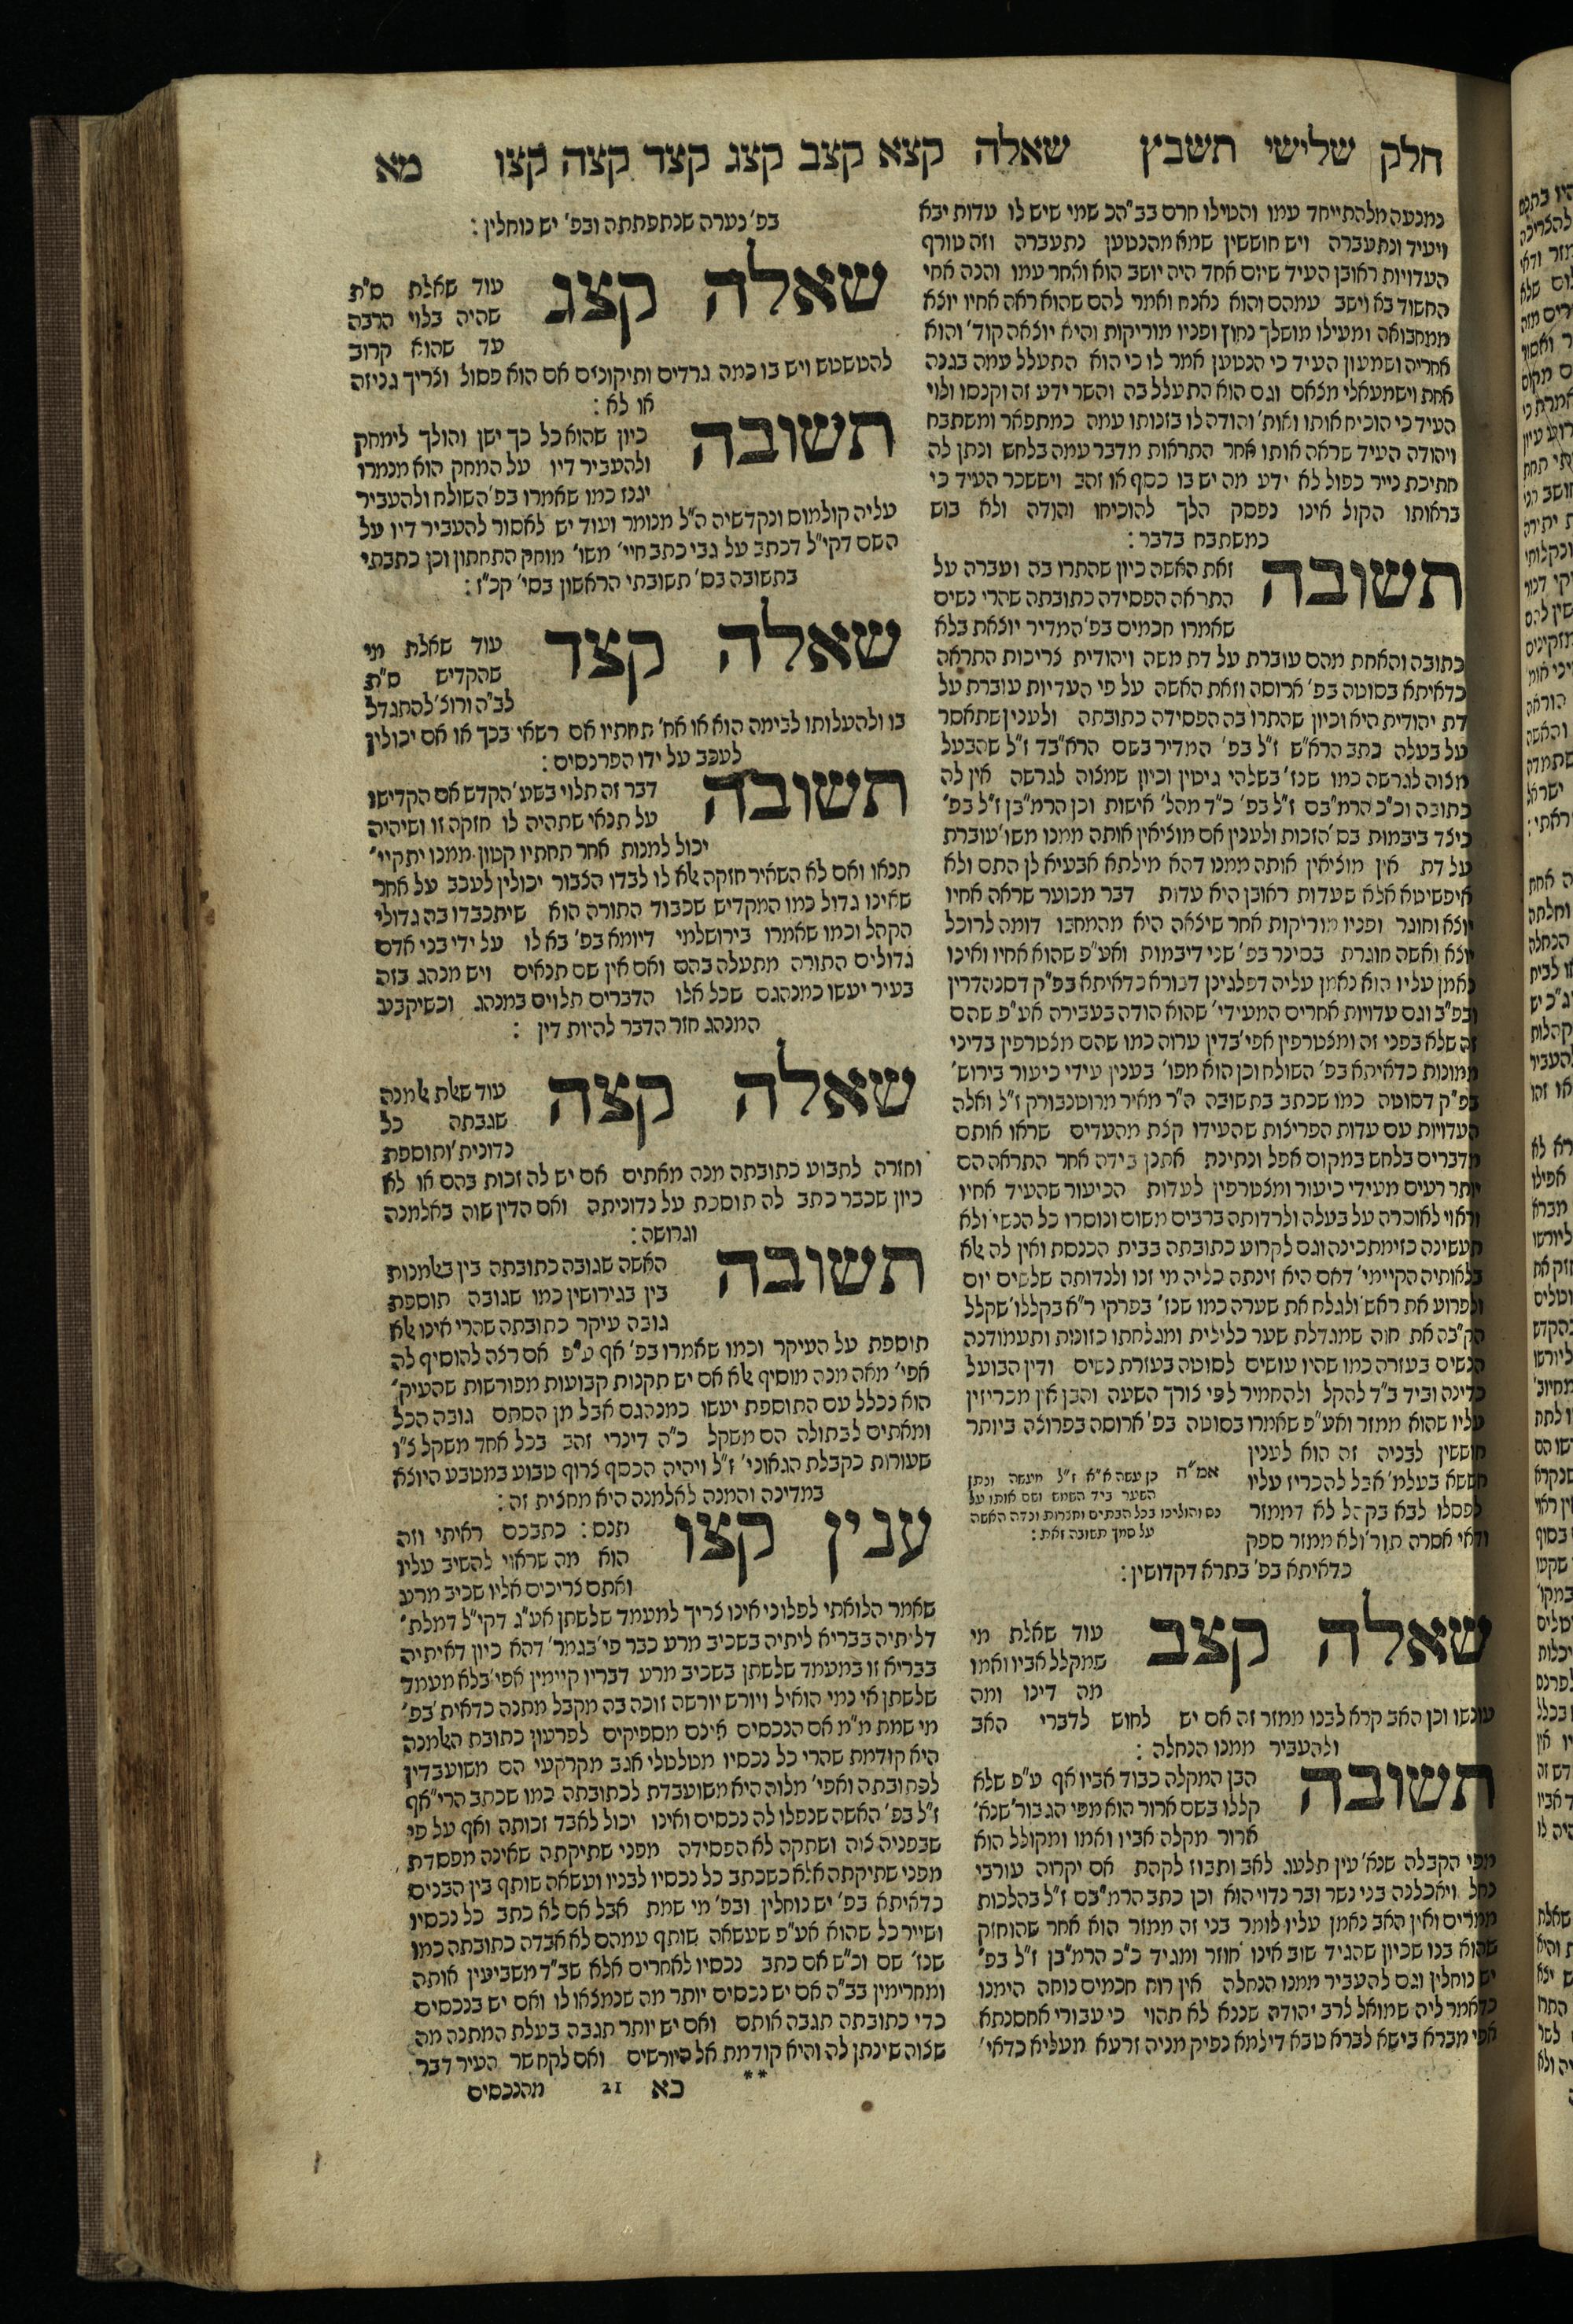 חלק שלישי תשבץ שאלה קצא קצב קצג קצד קצה קצו מא
נמנעה מלהתייחד עמו והטילו חרם בב"הכ שמי שיש לו עדות יבא
ויעיד ונתעברה ויש חוששין שמא מהנטען נתעברה וזה טורף
העדויות ראובן העיד שיום אחד היה יושב הוא ואחר עמו והנה אחי
החשוד בא וישב עמהם והוא נאנח ואמר להם שהוא ראה אחיו יוצא
ממחבואה ומעילו מושלך נחוץ ופניו מוריקות והיא יוצאה קוד' והוא
אחריה ושמעון העיד כי הנטען אמר לו כי הוא התעלל עמה בגנה
אחת וישמעאלי מצאם וגם הוא התעלל בה והשר ידע זה וקנסו ולוי
העיד כי הוכיח אותו ואות' והודה לו בזנותו עמה כמתפאר ומשתבח
ויהודה העיד שראה אותו אחר התראות מדבר עמה בלחש ונתן לה
חתיכת נייר כפול לא ידע מה יש בו כסף או זהב ויששכר העיד כי
בראותו הקול אינו נפסק הלך להוכיחו והודה ולא בוש
כמשתבח בדבר :
תשובה זאת האשה כיון שהתרו בה ועברה על
התראה הפסידה כתובתה שהרי נשים
שאמרו חכמים בפ' המדיר יוצאת בלא
כתובה והאחת מהם עוברת על דת משה ויהודית צריכות התראה
כדאיתא בסוטה בפ' ארוסה וזאת האשה על פי העדיות עוברת על
דת יהודית היא וכיון שהתרו בה הפסידה כתובתה ולענין שתאסר
על בעלה כתב הרא"ש ז"ל בפ' המדיר בשם הרא"בד ז"ל שהבעל
מצוה לגרשה כמו שנז' בשלהי גיטין וכיון שמצוה לגרשה אין לה
כתובה וכ"כ הרמ"בם ז"ל בפ' כ"ד מהל' אישות וכן הרמ"בן ז"ל בפ'
כיצד ביבמות בס' הזכות ולענין אם מוציאין אותה ממנו משו' עוברת
על דת אין מוציאין אותה ממנו דהא מילתא אבעיא לן התם ולא
איפשיטא אלא שעדות ראובן היא עדות דבר מכוער שראה אחיו
יוצא וחוגר ופניו מוריקות אחר שיצאה היא מהמחבו דומה לרוכל
יוצא ואשה חוגרת בסינר בפ' שני דיבמות ואע"פ שהוא אחיו ואינו
נאמן עליו הוא נאמן עליה דפלגינן דבורא כדאיתא בפ"ק דסנהדרין
ובפ"ב וגם עדויות אחרים המעידי' שהוא הודה בעבירה אע"פ שהם
זה שלא בפני זה ומצטרפין אפי' בדין ערוה כמו שהם מצטרפין בדיני
ממונות כדאיתא בפ' השולח וכן הוא מפו' בענין עידי כיעור בירוש'
בפ"ק דסוטה כמו שכתב בתשובה ה"ר מאיר מרוטנבורק ז"ל ואלה
העדויות עם עדות הפריצות שהעידו קצת מהעדים שראו אותם
מדברים בלחש במקום אפל ונתינת אתנן בידה אחר התראה הם
יותר רעים מעידי כיעור ומצטרפין לעדות הכיעור שהעיד אחיו
וראוי לאוסרה על בעלה ולרדותה ברבים משום ונוסרו כל הנשי' ולא
תעשינה כזימתכינה וגם לקרוע כתובתה בבית הכנסת ואין לה אלא
בלאותיה הקיימי' דאם היא זינתה כליה מי זנו ולנדותה שלשים יום
ולפרוע את ראש' ולגלח את שערה כמו שנז' בפרקי ר"א בקללו' שקלל
הק"בה את חוה שמגדלת שער כלילית ומגלחתו כזונות ותעמודנה
הנשים בעזרה כמו שהיו עושים לסוטה בעזרת נשים ודין הבועל
כדינה וביד ב"ד להקל ולהחמיר לפי צורך השעה והבן אין מכריזין
עליו שהוא ממזר ואע"פ שאמרו בסוטה בפ' ארוסה בפרוצה ביותר
חוששין לבניה זה הוא לענין
חששא בעלמ' אבל להכריז עליו
לפסלו לבא בקהל לא דממזר
ודאי אסרה תור' ולא ממזר ספק
כדאיתא בפ' בתרא דקדושין :
אמ"ה כן עשה א"א ז"ל מעשה ונתן
השער ביד השמש ושם אותו על
נס והוליכו בכל הבתים וחצרות ונדה האשה
על סמך תשובה זאת :
שאלה קצב עוד שאלת מי
שמקלל אביו ואמו
מה דינו ומה
עונשו וכן האב קרא לבנו ממזר זה אם יש לחוש לדברי האב
ולהעביר ממנו הנחלה :
תשובה הבן המקלה כבוד אביו אף ע"פ שלא
קללו בשם ארור הוא מפי הגבור' שנא'
ארור מקלה אביו ואמו ומקולל הוא
מפי הקבלה שנא' עין תלעג לאב ותבוז לקהת אם יקרוה עורבי
נחל ויאכלנה בני נשר ובר נדוי הוא וכן כתב הרמ"בם ז"ל בהלכות
ממרים ואין האב נאמן עליו לומר בני זה ממזר הוא אחר שהוחזק
שהוא בנו שכיון שהגיד שוב אינו חוזר ומגיד כ"כ הרמ"בן ז"ל בפ'
יש נוחלין וגם להעביר ממנו הנחלה אין רוח חכמים נוחה הימנו
כדאמר ליה שמואל לרב יהודה שננא לא תהוי כי עבורי אחסנתא
אפי מברא בישא לברא טבא דילמא נפיק מניה זרעא מעליא כדאי'
בפ' נערה שנתפתתה ובפ' יש נוחלין :
שאלה קצג עוד שאלת ס"ת
שהיה בלוי הרבה
עד שהוא קרוב
להטשטש ויש בו כמה גרדים ותיקונים אם הוא פסול וצריך גניזה
או לא :
תשובה כיון שהוא כל כך ישן והולך לימחק
ולהעביר דיו על המחק הוא מנמרו
יגנז כמו שאמרו בפ' השולח ולהעביר
עליה קולמוס ונקדשיה ה"ל מנומר ועוד יש לאסור להעביר דיו על
השם דקי"ל דכתב על גבי כתב חיי' משו' מוחק התחתון וכן כתבתי
בתשובה בס' תשובתי הראשון בסי' קכ"ז :
שאלה קצד עוד שאלת מי
שהקדיש ס"ת
לב"ה ורוצ' להתגדל
בו ולהעלותו לבימה הוא או אח' תחתיו אם רשאי בכך או אם יכולין
לעכב על ידו הפרנסים :
תשובה דבר זה תלוי בשע' הקדש אם הקדישו
על תנאי שתהיה לו חזקה זו ושיהיה
יכול למנות אחר תחתיו קטון ממנו יתקיי'
תנאו ואם לא השאיר חזקה אלא לו לבדו הצבור יכולין לעכב על אחר
שאינו גדול כמו המקדיש שכבוד התורה הוא שיתכבדו בה גדולי
הקהל וכמו שאמרו בירושלמי דיומא בפ' בא לו על ידי בני אדם
גדולים התורה מתעלה בהם ואם אין שם תנאים ויש מנהג בזה
בעיר יעשו כמנהגם שכל אלו הדברים תלוים במנהג וכשיקבע
המנהג חזר הדבר להיות דין :
שאלה קצה עוד שאלת אלמנה
שגבתה כל
נדונית' ותוספת
וחזרה לתבוע כתובתה מנה מאתים אם יש לה זכות בהם או לא
כיון שכבר כתב לה תוספת על נדוניתה ואם הדין שוה באלמנה
וגרושה :
תשובה האשה שגובה כתובתה בין באלמנות
בין בגירושין כמו שגובה תוספת
גובה עיקר כתובתה שהרי אינו אלא
תוספת על העיקר וכמו שאמרו בפ' אף ע"פ אם רצה להוסיף לה
אפי' מאה מנה מוסיף אלא אם יש תקנות קבועות מפורשות שהעיק'
הוא נכלל עם התוספת יעשו כמנהגם אבל מן הסתם גובה הכל
ומאתים לבתולה הם משקל כ"ה דינרי זהב בכל אחד משקל צ"ו
שעורות כקבלת הגאוני' ז"ל ויהיה הכסף צרוף טבוע במטבע היוצא
במדינה והמנה לאלמנה היא מחצית זה :
ענין קצו תנס : כתבכם ראיתי וזה
הוא מה שראוי להשיב עליו
ואתם צריכים אליו שכיב מרע
שאמר הלואתי לפלוני אינו צריך למעמד שלשתן אע"ג דקי"ל דמלת'
דליתיה בבריא ליתיה בשכיב מרע כבר פי' בגמר' דהא כיון דאיתיה
בבריא זו במעמד שלשתן בשכיב מרע דבריו קיימין אפי' בלא מעמד
שלשתן אי נמי הואיל ויורש יורשה זוכה בה מקבל מתנה כדאית' בפ'
מי שמת מ"מ אם הנכסים אינם מספיקים לפרעון כתובת האלמנה
היא קודמת שהרי כל נכסיו מטלטלי אגב מקרקעי הם משועבדין
לכתובתה ואפי' מלוה היא משועבדת לכתובתה כמו שכתב הרי"אף
ז"ל בפ' האשה שנפלו לה נכסים ואינו יכול לאבד זכותה ואף על פי
שבפניה צוה ושתקה לא הפסידה מפני שתיקתה שאינה מפסדת
מפני שתיקתה אלא כשכתב כל נכסיו לבניו ועשאה שותף בין הבנים
כדאיתא בפ' יש נוחלין ובפ' מי שמת אבל אם לא כתב כל נכסיו
ושייר כל שהוא אע"פ שעשאה שותף עמהם לא אבדה כתובתה כמו
שנז' שם וכ"ש אם כתב נכסיו לאחרים אלא שב"ד משביעין אותה
ומחרימין בב"ה אם יש נכסים יותר מה שנמצאו לו ואם יש בנכסים
כדי כתובתה תגבה אותם ואם יש יותר תגבה בעלת המתנה מה
שצוה שינתן לה והיא קודמת אל היורשים ואם לקח שר העיר דבר
** כא 21 מהנכסים